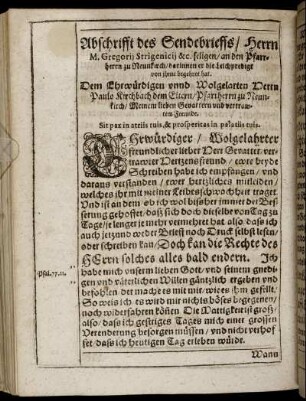 Abschrifft des Sendebrieffs / Herrn
M. Gregorij Strigenicij &c. seligen / an den Pfarr-
herrn zu Neunkirch / darinnen er die Leichpredigt
von ihme begehret hat.
Dem Ehrwürdigen vnnd Wolgelarten Herrn
Paulo Kirchbach dem Eltern / Pfarrherrn zu Neun-
kirch / Meinem lieben Gevattern vnd vertraw-
ten Freunde.
Sit pax in atriis tuis, & prosperitas in palatiis tuis.
EHrwürdiger / Wolgelahrter
freundlicher lieber Herr Gevatter, ver-
trawter Hertzensfreund / ewre beyde
Schreiben habe ich empfangen / vnd
daraus verstanden / ewer hertzliches mitleiden /
welches ihr mit meiner Leibesschwachheit traget.
Vnd ist an dem / ob ich wol bißher immer der Bes-
serung gehoffet / daß sich doch dieselbe von Tag zu
Tage / je lenger je mehr vermehret hat / also daß ich
auch jetzund weder Brieff noch Druck selbst lesen /
oder schreiben kan / Doch kan die Rechte des
HErrn solches alles bald endern. Ich
habe mich vnserm lieben Gott / vnd seinem gnedi-
gen vnd väterlichen Willen gäntzlich ergeben vnd
befohlen / der mache es mit mir / wie es ihm gefellt /
So weis ich es wird mir nichts böses begegenen /
noch widerfahren können. Die Mattigkeit ist groß /
also / daß ich gestriges Tages mich einer grossen
Verenderung besorgen müssen / vnd nicht verhof-
fet / daß ich heutigen Tag erleben würde.
Psal. 77. 11.
Wann